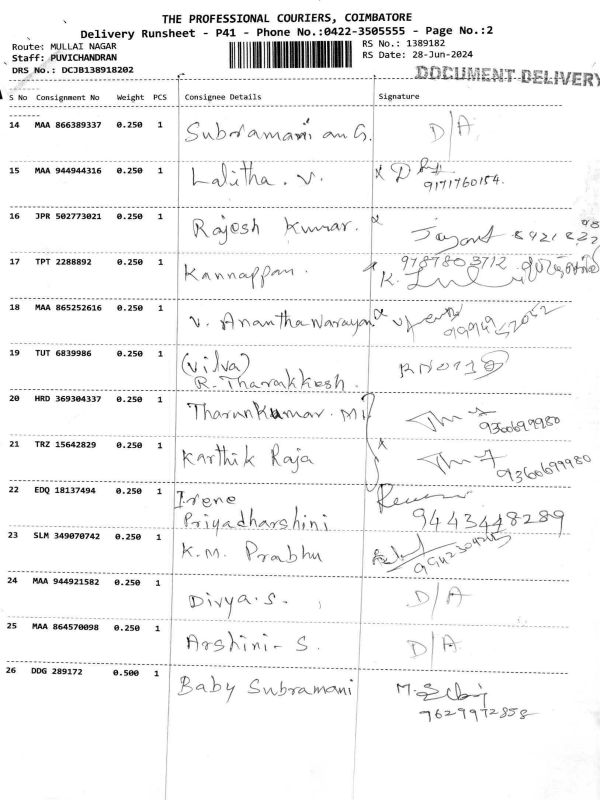 THE PROFESSIONAL COURIERS, COIMBATORE
Delivery Runsheet - P41 - Phone No.:0422-3505555 - Page No.:2
Route: MULLAI NAGAR
RS No.: 1389182
Staff: PUVICHANDRAN
RS Date: 28-Jun-2024
DRS No.: DCJB138918202
DOCUMENT DELIVERY
S No Consignment No Weight PCS Consignee Details Signature
14 MAA 866389337 0.250 1 Subramanian G. D/A
15 MAA 944944316 0.250 1 Lalitha. V. x
9171760184.
16 JPR 502773021 0.250 1 Rajesh Kumar. x
17 TPT 2288892 0.250 1 Kannappan. 9787803712
K.
18 MAA 865252616 0.250 1 V. Ananthanarayan x
19 TUT 6839986 0.250 1 (Vilva)
R. Tharakkesh.
20 HRD 369304337 0.250 1 Tharunkumar. M
9360699980
21 TRZ 15642829 0.250 1 Karthik Raja x
9360699980
22 EDQ 18137494 0.250 1 Irene
Priyadharshini 9443448289
23 SLM 349070742 0.250 1 K.M. Prabhu
24 MAA 944921582 0.250 1 Divya.S. D/A
25 MAA 864570098 0.250 1 Arshini- S. D/A
26 DDG 289172 0.500 1 Baby Subramani M.
7629972858